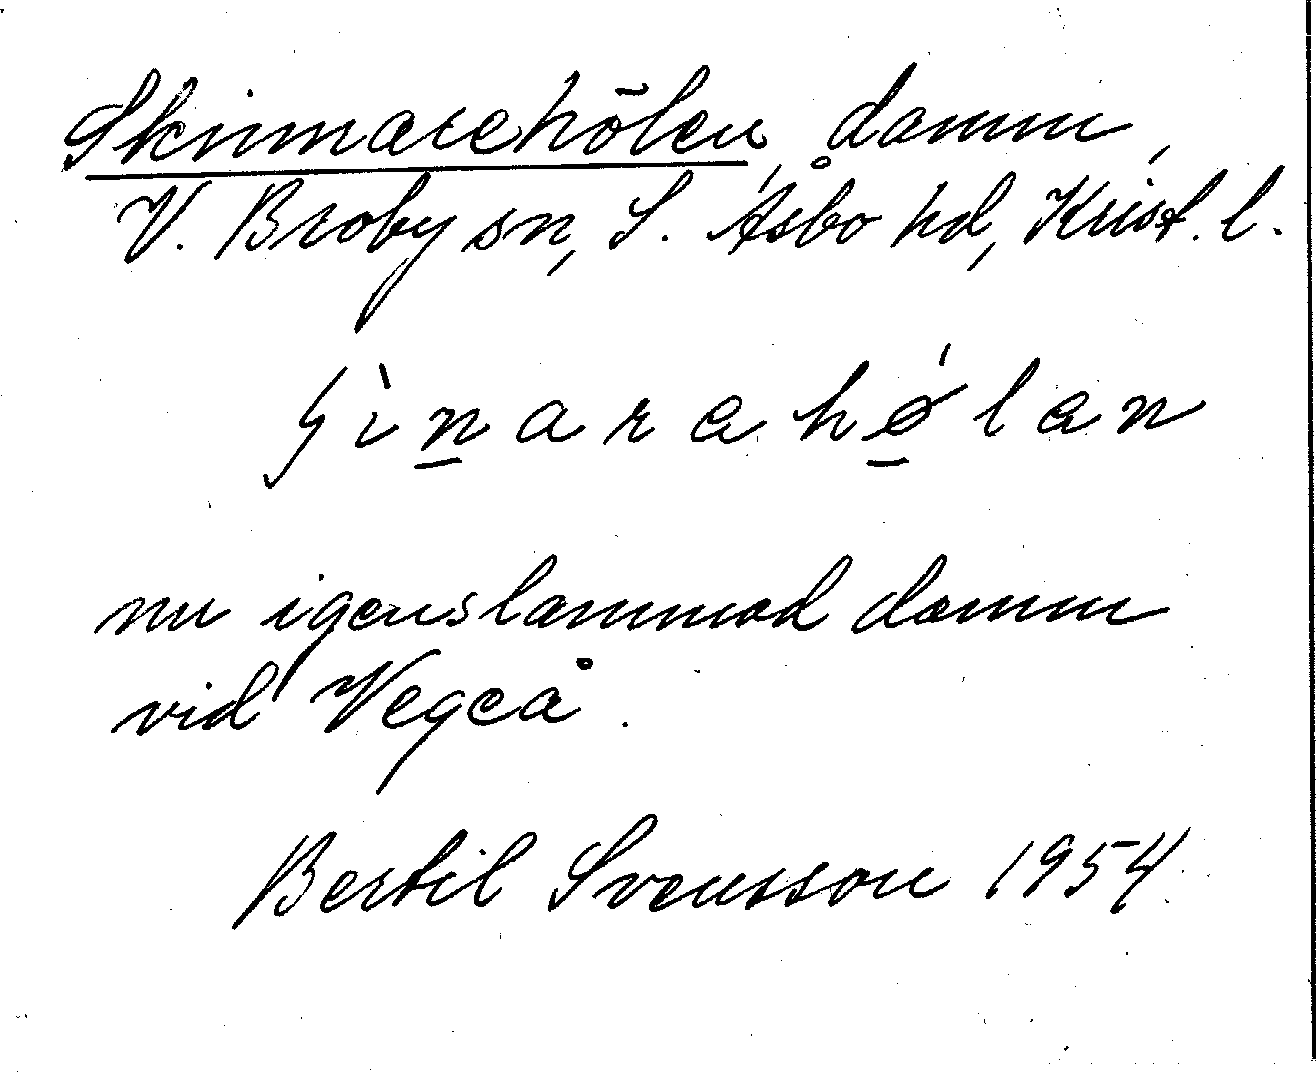 Skinnarehölen, damm,
V. Broby sn, S. Åsbo hd, Krist. l.
nu igenslammad damm
vid Vegeå.
Bertil Svensson 1954.